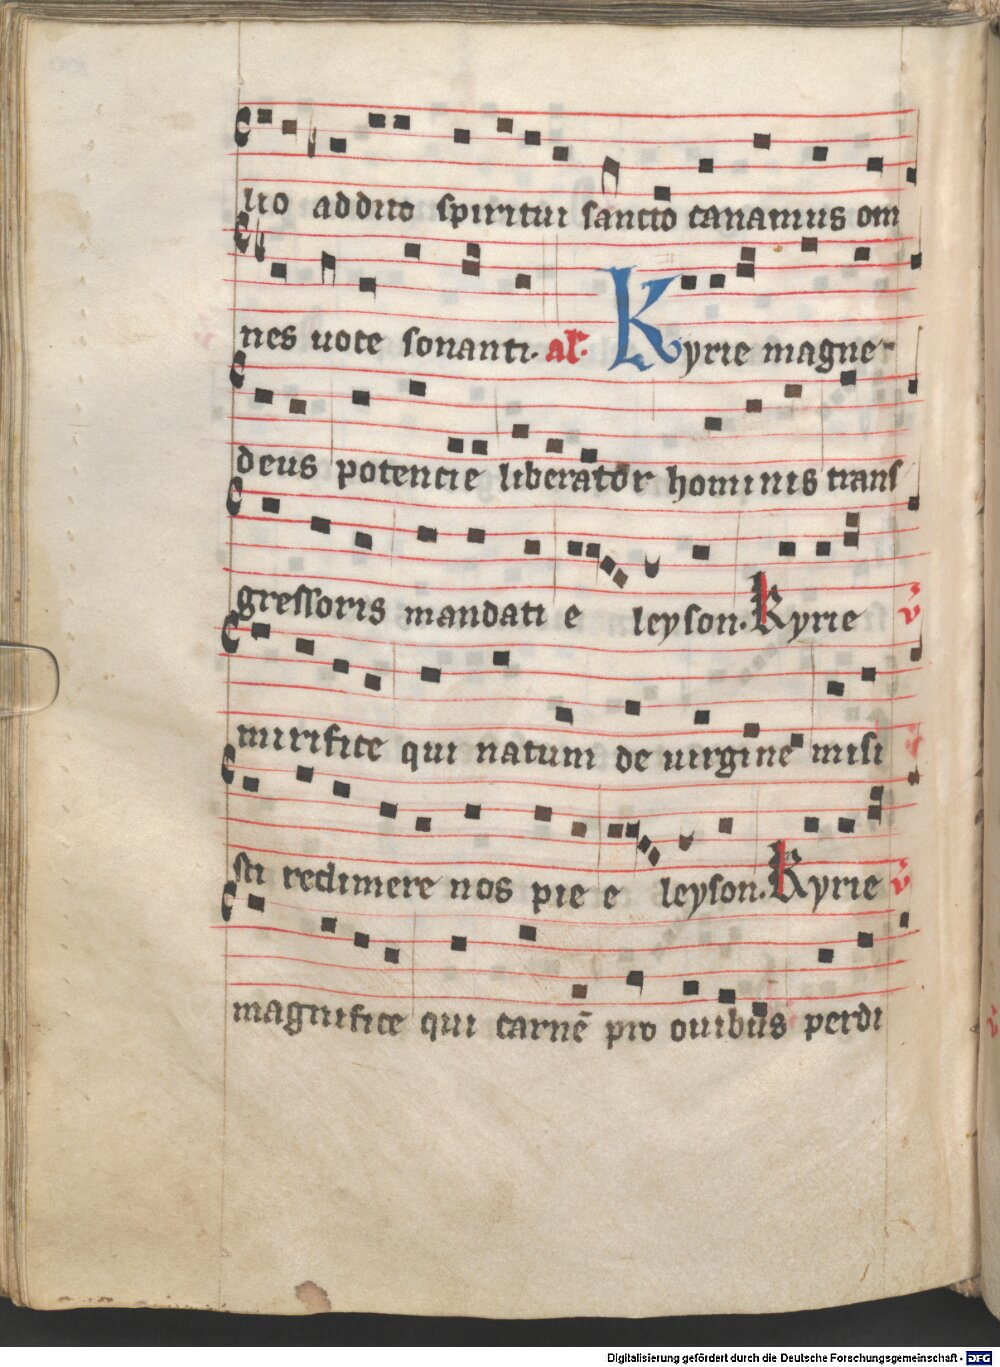 lio addito spiritui sancto canamus om
nes uoce sonanti. al'. Kyrie magne
deus potencie liberator hominis trans
gressoris mandati e leyson. Kyrie v̄
mirifice qui natum de uirgine misi
sti redimere nos pie e leyson. Kyrie v̄
magnifice qui carnē pro ouibus perdi
Digitalisierung gefördert durch die Deutsche Forschungsgemeinschaft - DFG